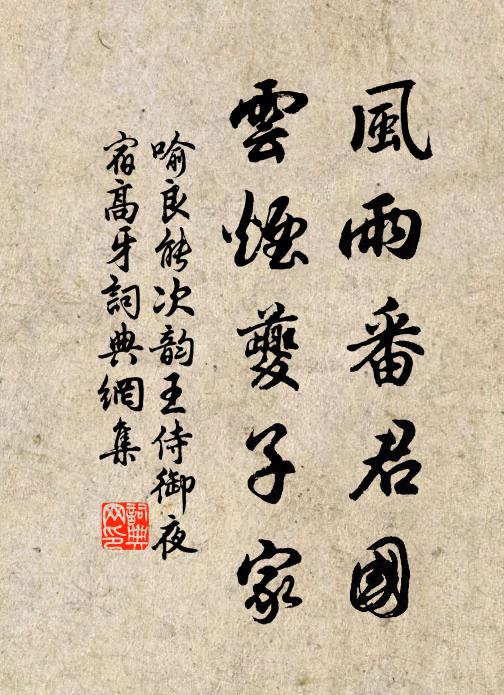 風雨番君國
雲煙夔子家
喻良能次韵王侍御夜
宿高牙詞典網集
詞典
网印